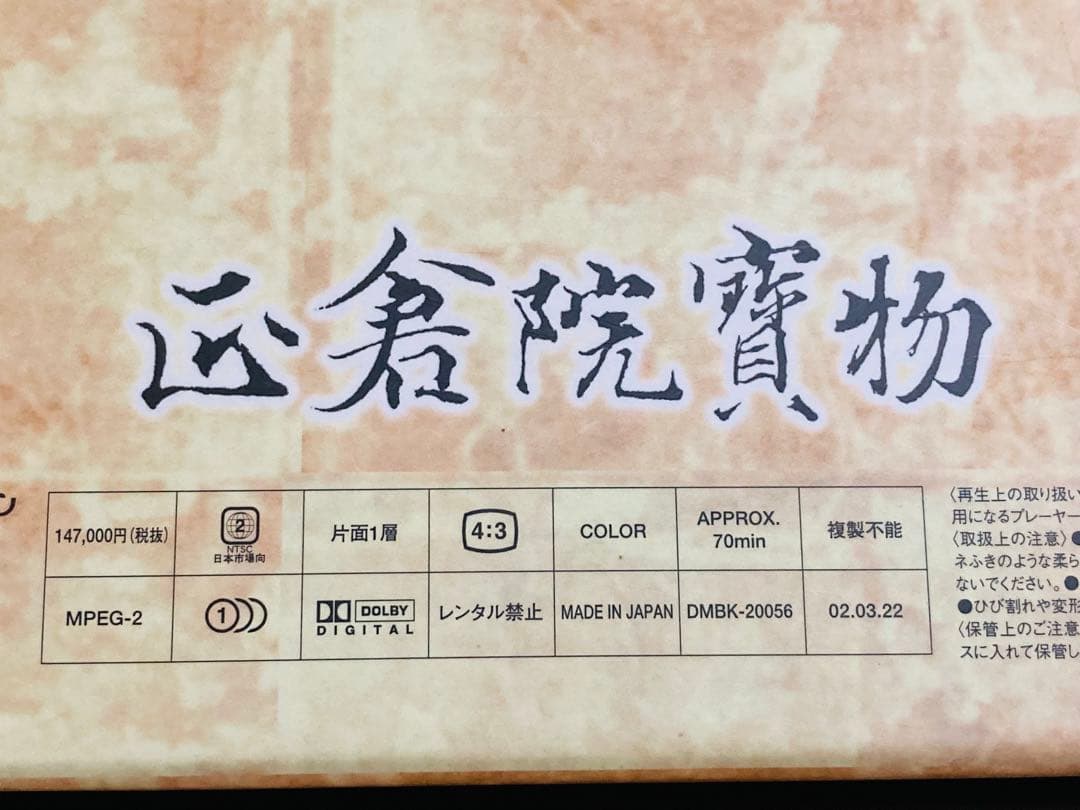 正倉院寶物
ン
147,000円(税抜)
2
NTSC
日本市場向
片面1層
4:3
COLOR
APPROX.
70min
複製不能
MPEG-2
1
DOLBY
DIGITAL
レンタル禁止
MADE IN JAPAN
DMBK-20056
02.03.22
〈再生上の取り扱い
用になるプレーヤー
〈取扱上の注意〉●
ネふきのような柔ら
ないでください。●
●ひび割れや変形
〈保管上のご注意
スに入れて保管し